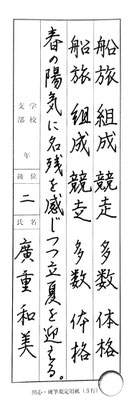 船旅組成競走多数体格
船旅組成競走多数体格
春の陽気に名残を感じつつ立夏を迎える。
学校
支部
年
級位
二
氏名
廣重和美
用心・硬筆規定用紙（3行）